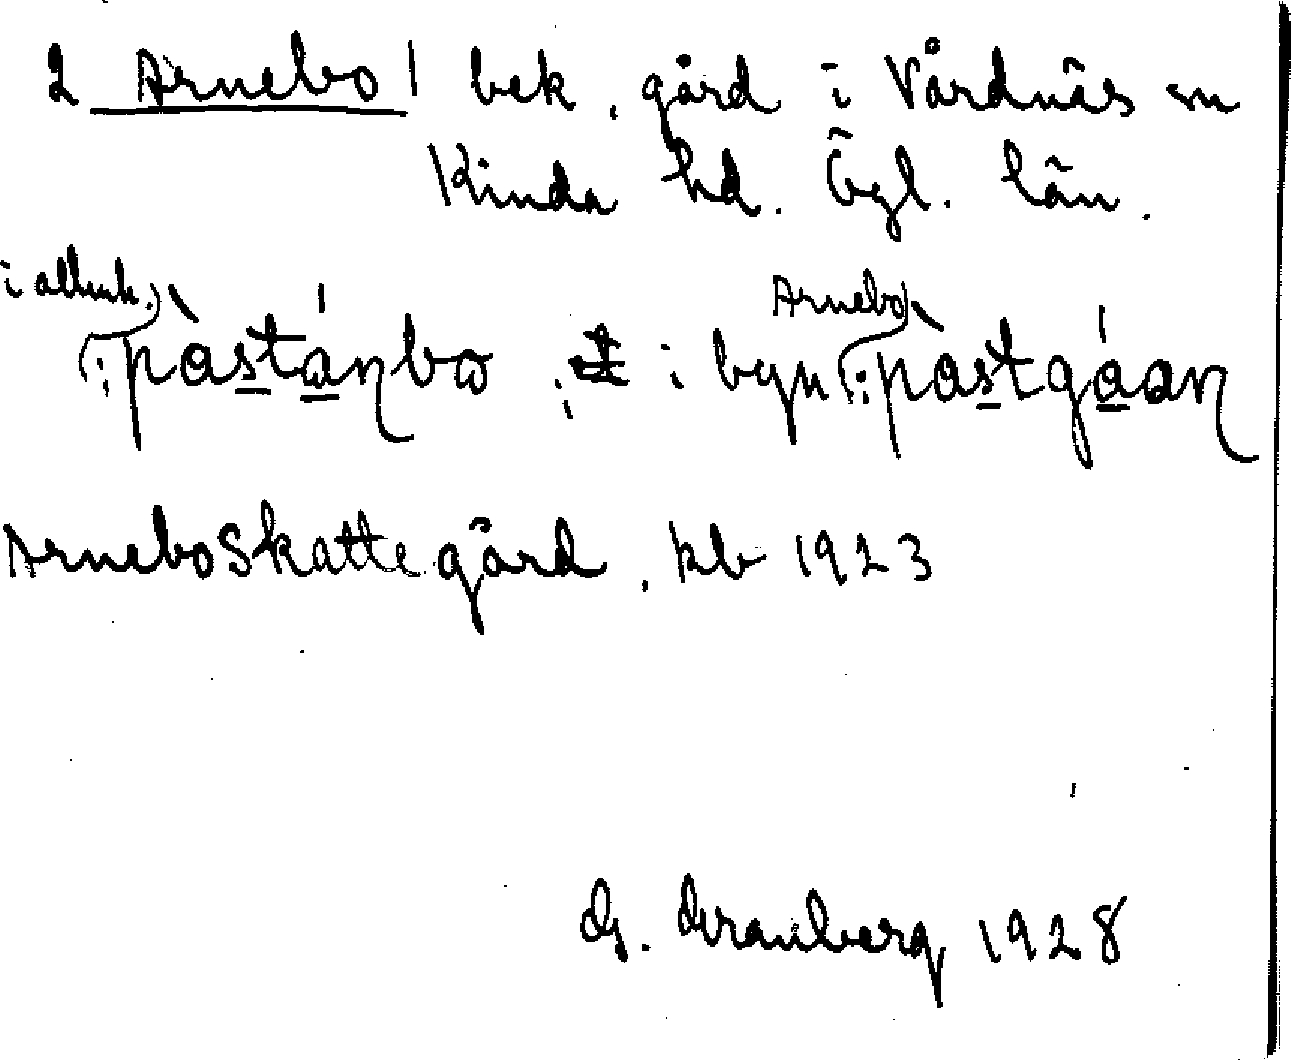 2 Arnebo | bek. gård i Vårdnäs sn
Kinda hd. Ögl. län.
i allmh. Arnebo
(: pàstánbo : i byn (: pàstgáan
Arnebo Skattegård. kb 1923
G. Svanberg 1928